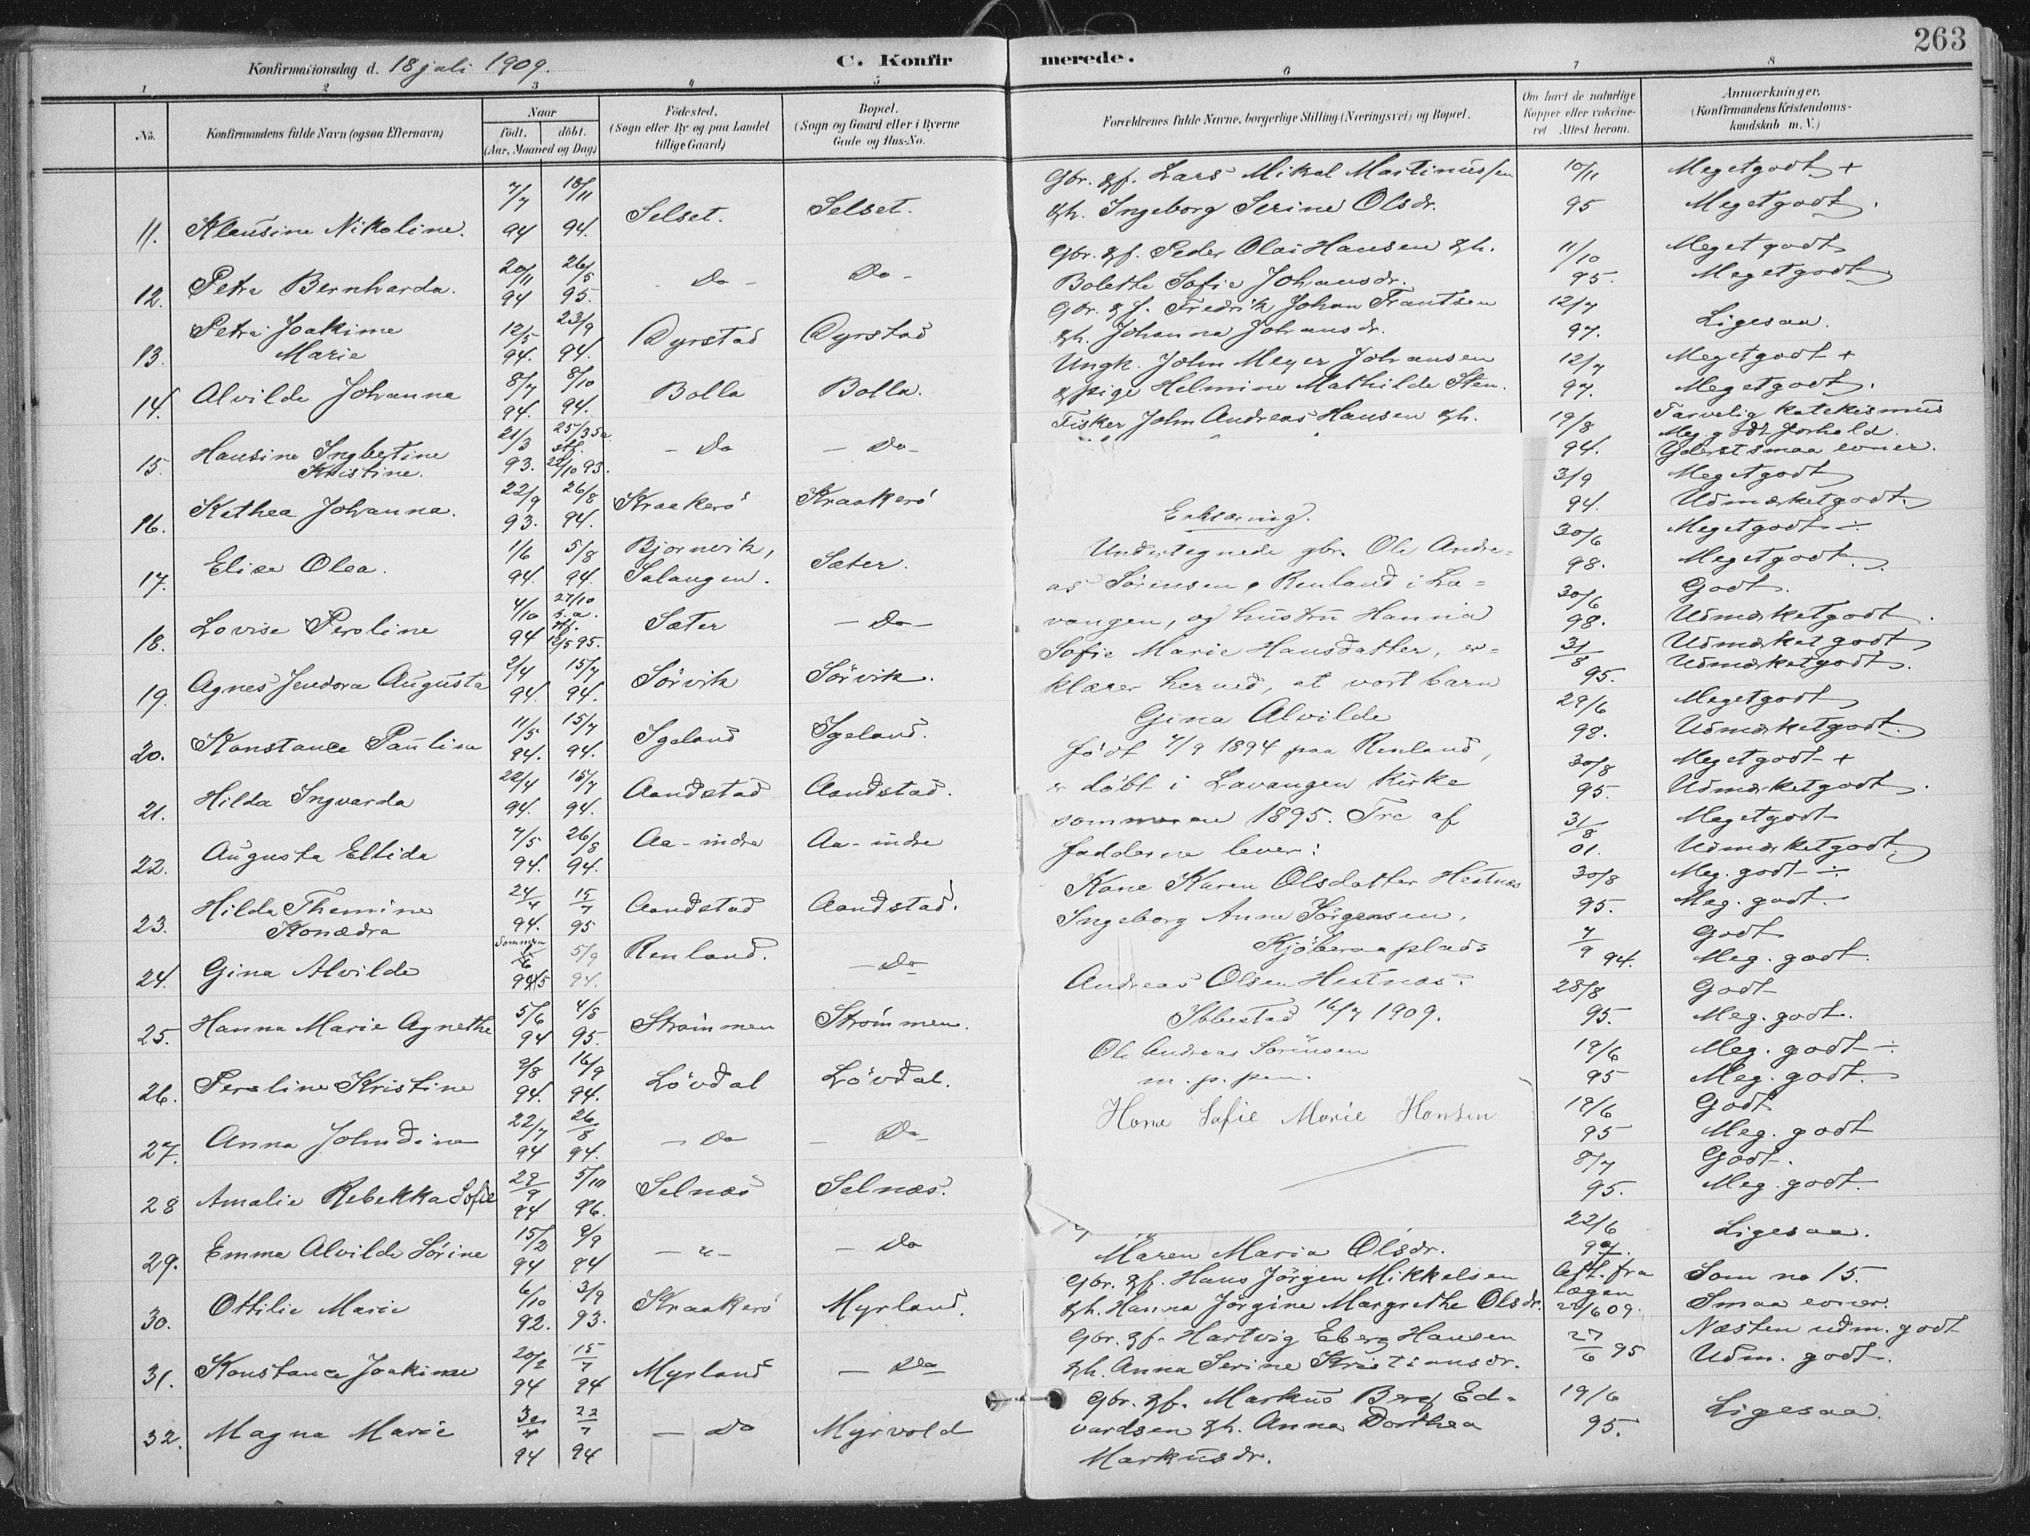 263
Konfirmationsdag d. 18 juli 1909.
C. Konfirmerede.
1 2 3 4 5 6 7 8
No.
Konfirmandens fulde Navn (ogsaa Efternavn)
Naar
födt. döbt.
(Aar, Maaned og Dag)
Födested.
(Sogn eller By og paa Landet
tillige Gaard)
Bopæl.
(Sogn og Gaard eller i Byerne
Gade og Hus-No.
Forældrenes fulde Navne, borgerlige Stilling (Næringsvei) og Bopæl.
Om havt de naturlige
Kopper eller vakcine-
ret Attest herom.
Anmærkninger.
(Konfirmandens Kristendoms-
kundskab m. V.)
11. Klausine Nikoline. 7/7 94 18/11 94. Selset. Selset.
Gbr. gf. Lars Mikal Martinussen
& h. Ingeborg Serine Olsdr.
10/11 95
Megetgodt +
Megetgodt.
12. Petra Bernharda. 20/11 94 26/5 95. Do - Do -
Gbr. gf. Peder Olai Hansen & h.
Bolette Sofie Johansdr.
11/10 95.
Meget godt
Megetgodt
13. Petra Joakime
Marie 12/5 94. 23/9 94. Dyrstad Dyrstad
Gbr. gf. Fredrik Johan Frantsen
& h. Johanna Johansdr.
12/7 97.
Ligesaa.
14. Alvilde Johanna 8/7 94. 8/10 94. Bolla Bolla.
Ungk. John Meyer Johansen
& pige Helmine Mathilde Sten.
12/7 97.
Megetgodt +
Megetgodt.
15. Hansine Ingbertine
Kristine. 21/3 93. 25/3 sa. stf. 22/10 93. - Do - Do -
Fisker John Andreas Hansen & h.
19/8 94.
Tarvelig katekismus
Meg. godt forhold.
Yderst smaa evner.
16. Kathea Johanna. 22/9 93. 26/8 94. Kraakerö Kraakerö
3/9 94.
Megetgodt
Udmærketgodt.
17. Elise Olea. 1/6 94. 5/8 94. Bjornvik,
Salangen. Sæter.
30/6 98.
Megetgodt ÷
Megetgodt.
18. Lovise Peroline 4/10 94 27/10 s.a. stf. 12/5 95. Sæter - Do -
30/6 98.
Godt.
Udmærketgodt.
19. Agnes Jendora Augusta 2/4 94. 15/7 94. Sörvik Sörvik.
31/8 95.
Udmærket godt
Udmærketgodt.
20. Konstance Pauline 11/5 94. 15/7 94. Igeland Igeland.
29/6 98.
Megetgodt
Udmærketgodt.
21. Hilda Ingvarda 22/4 94. 15/7 94. Aandstad Aandstad.
30/8 95.
Megetgodt +
Udmærketgodt.
22. Augusta Elfida 7/5 94. 26/8 94. Aa-indre Aa-indre
31/8 01.
Megetgodt
Udmærketgodt
23. Hilda Themine
Konædra 24/4 94. 15/7 95 Aandstad Aandstad.
30/8 95.
Meg. godt ÷
Meg. godt.
24. Gina Alvilde 5/9 94. Renland. - Do
7/9 94.
Godt
Meg. godt.
25. Hanna Marie Agnethe 5/6 94 4/8 95. Strömmen Strömmen.
28/8 95.
Godt
Meg. godt.
26. Peroline Kristine 9/8 94. 16/9 94. Lövdal Lövdal.
19/6 95
Meg. godt ÷
Meg. godt.
27. Anna Johndine 22/7 94 26/8 94. - Do - Do -
19/6 95
Godt
Meg. godt
28 Amalie Rebekka Sofie 29/9 94 5/10 96. Selnæs Selnæs.
8/7 95.
Godt.
Meg. godt.
29. Emma Alvilde Sörine 15/2 94 9/9 94 - " - - Do
Maren Maria Olsdr.
22/6
Ligesaa.
30. Ottilie Marie 6/10 92. 3/9 93. Kraakerö Myrland.
Gbr. gf. Hans Jörgen Mikkelsen
& h. Hanna Jörgine Margrethe Olsdr.
Att. fra
lægen
22/6 09.
Som no 15.
Smaa evner.
31. Konstance Joakime 20/2 94 15/7 94 Myrland - Do
Gbr. gf. Hartvig Eberg Hansen
& h. Anna Serine Kristiansdr.
27/6 95
Næsten udm. godt
Udm. godt.
32. Magna Marie 30/4 94 22/7 94 - Do Myrvold
Gbr. gf. Markus Berg Ed-
vardsen & h. Anna Dorthea
Markusdr.
19/6 95.
Ligesaa.
Erklæring.
Undertegnede gbr. Ole Andre-
as Sörensen, Renland i La-
vangen, og hustru Hanna
Sofie Marie Hansdatter, er-
klærer herved, at vort barn
Gina Alvilde
födt 7/9 1894 paa Renland,
er döbt i Lavangen kirke
sommeren 1895. Tre af
fadderne lever:
Kone Karen Olsdatter Hestnæs
Ingeborg Anne Jörgensen,
Andreas Olsen Hestnæs.
Ibbestad 16/7 1909.
Ole Andreas Sörensen
m. p. pen.
Hana Sofie Marie Hansen